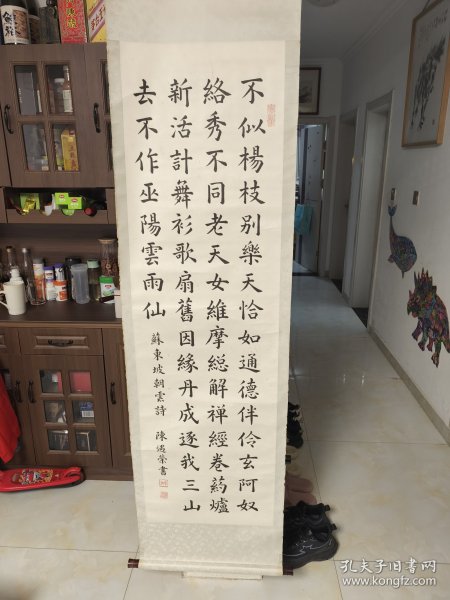 不似楊枝別樂天恰如通德伴伶玄阿奴
絡秀不同老天女維摩總解禪經卷葯爐
新活計舞衫歌扇舊因緣丹成逐我三山
去不作巫陽雲雨仙
蘇東坡朝雲詩 陳榮書
孔夫子旧书网
www.kongfz.com